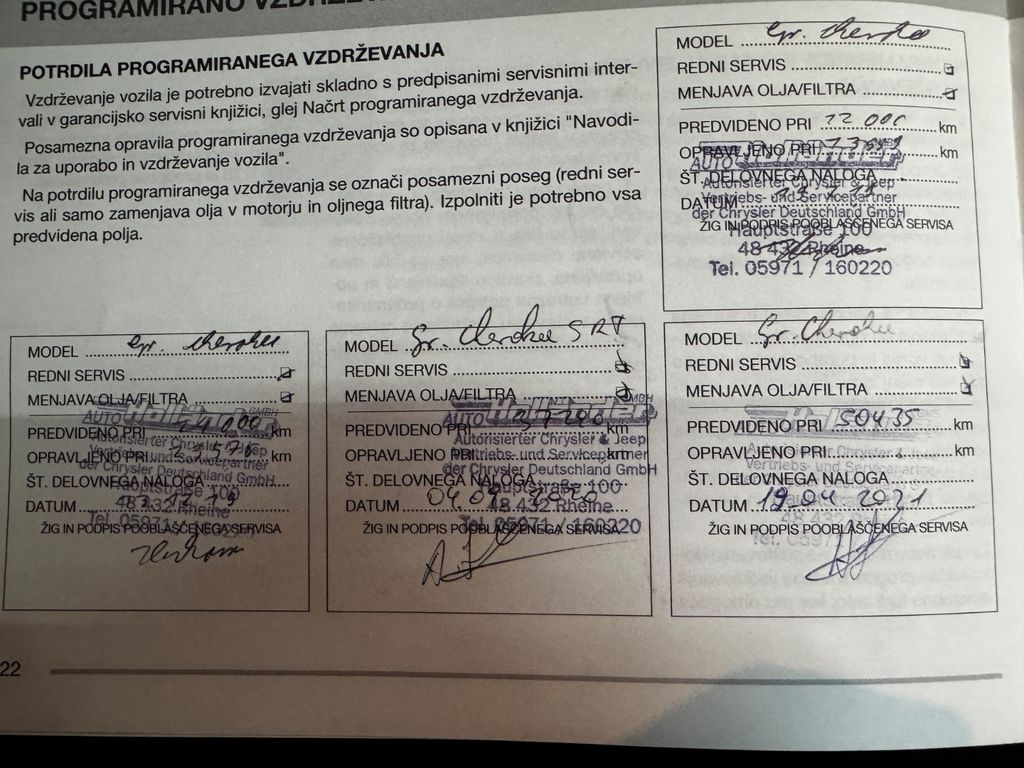 PROGRAMIRANO
POTRDILA PROGRAMIRANEGA VZDRŽEVANJA
Vzdrževanje vozila je potrebno izvajati skladno s predpisanimi servisnimi inter-
vali v garancijsko servisni knjižici, glej Načrt programiranega vzdrževanja.
Posamezna opravila programiranega vzdrževanja so opisana v knjižici "Navodi-
la za uporabo in vzdrževanje vozila".
Na potrdilu programiranega vzdrževanja se označi posamezni poseg (redni ser-
vis ali samo zamenjava olja v motorju in oljnega filtra). Izpolniti je potrebno vsa
predvidena polja.
MODEL Gr. Cherokee
REDNI SERVIS
MENJAVA OLJA/FILTRA
PREDVIDENO PRI 12 000 km
OPRAVLJENO PRI km
AUTO
ŠT. DELOVNEGA NALOGA
Autorisierter Chrysler & Jeep
Vertriebs- und Servicepartner
DATUM
der Chrysler Deutschland GmbH
ŽIG IN PODPIS POOBLAŠČENEGA SERVISA
Hauptstraße 100
48 432 Rheine
Tel. 05971 / 160220
MODEL Gr. Cherokee
REDNI SERVIS
MENJAVA OLJA/FILTRA
AUTO GMBH
PREDVIDENO PRI 24 000 km
Autorisierter Chrysler & Jeep
OPRAVLJENO PRI km
Vertriebs- und Servicepartner
der Chrysler Deutschland GmbH
ŠT. DELOVNEGA NALOGA
Hauptstraße 100
DATUM
48 432 Rheine
Tel. 05971
ŽIG IN PODPIS POOBLAŠČENEGA SERVISA
MODEL Gr. Cherokee SRT
REDNI SERVIS
MENJAVA OLJA/FILTRA
AUTO GMBH
PREDVIDENO PRI km
Autorisierter Chrysler & Jeep
OPRAVLJENO PRI km
Vertriebs- und Servicepartner
der Chrysler Deutschland GmbH
ŠT. DELOVNEGA NALOGA
Hauptstraße 100
DATUM 04 09 2020
48 432 Rheine
Tel. 05971 / 160220
ŽIG IN PODPIS POOBLAŠČENEGA SERVISA
MODEL Gr. Cherokee
REDNI SERVIS
MENJAVA OLJA/FILTRA
PREDVIDENO PRI 50435 km
Autorisierter Chrysler &
OPRAVLJENO PRI km
Vertriebs- und Servicepartner
ŠT. DELOVNEGA NALOGA
DATUM 19.04 2021
ŽIG IN PODPIS POOBLAŠČENEGA SERVISA
22